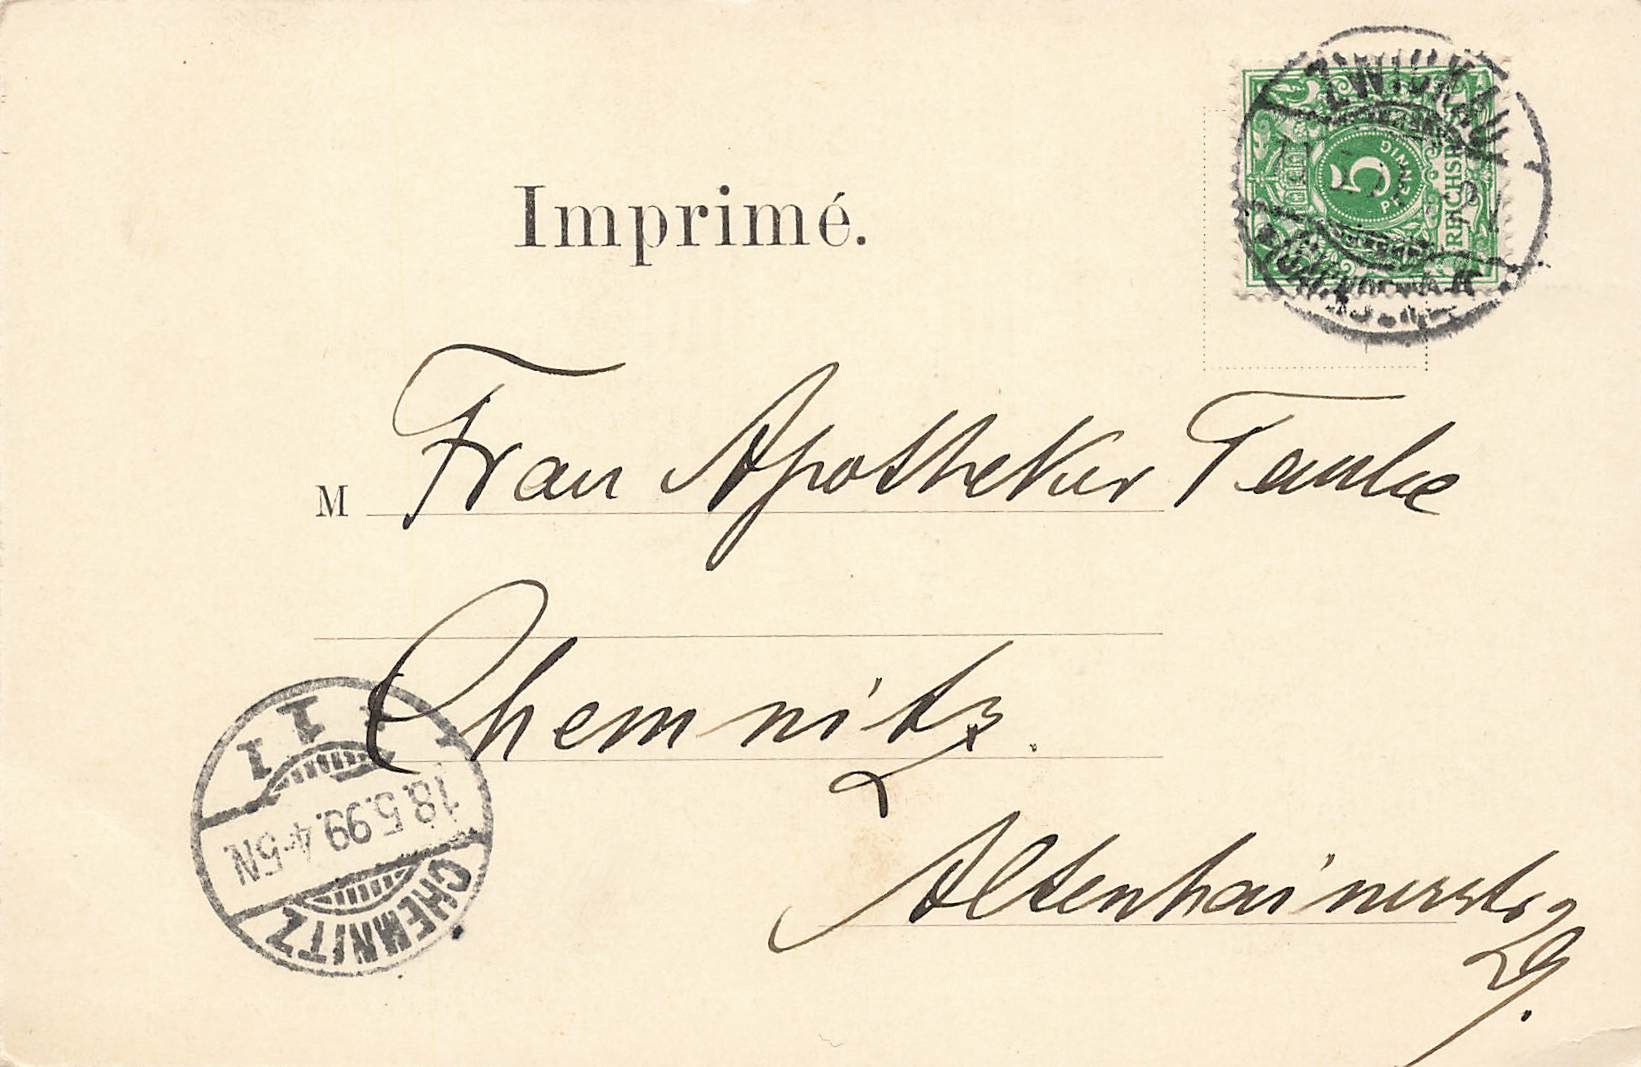 Imprimé.
ZWICKAU
5
PFENNIG
REICHSP
M Frau Apotheker Tauke
Chemnitz.
Altenhainerstr.
29.
* 11
18.5.99.4-5N.
CHEMNITZ